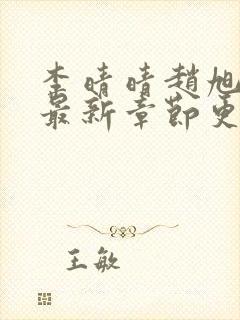 李晴晴趙旭
最新章節更
王敏